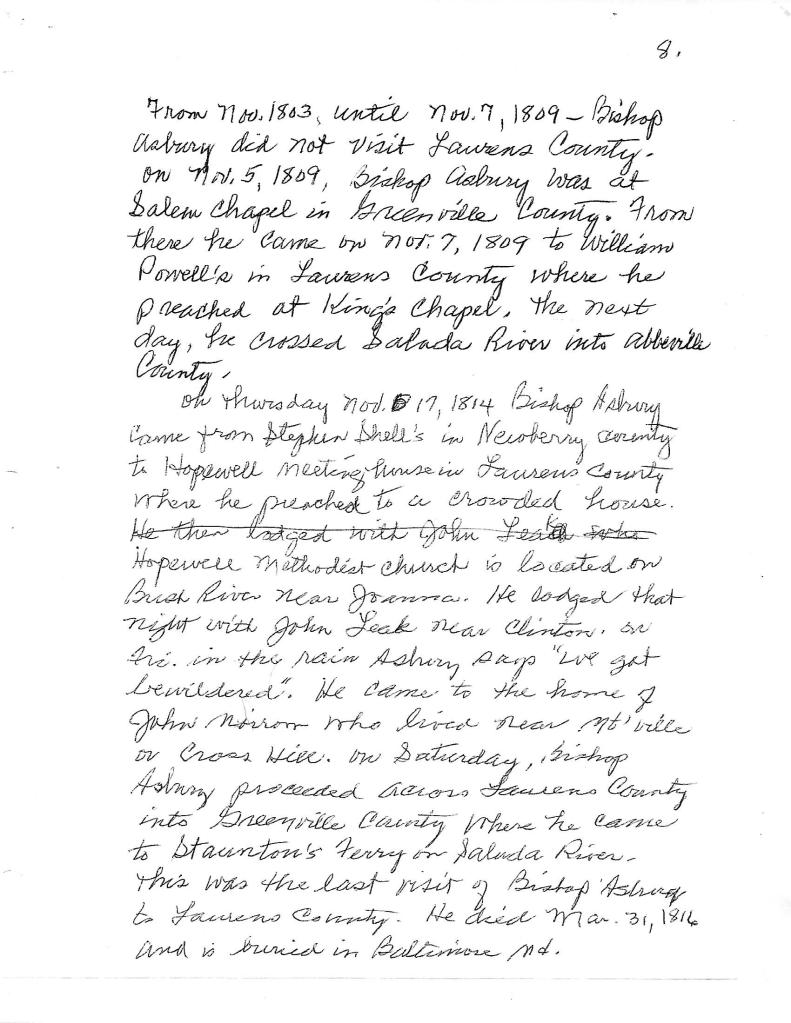 8.
From Nov. 1803, until Nov. 7, 1809 – Bishop
Asbury did not visit Laurens County.
on Nov. 5, 1809, Bishop Asbury was at
Salem Chapel in Greenville County. From
there he came on Nov. 7, 1809 to William
Powell's in Laurens County where he
preached at King's Chapel. The next
day, he crossed Saluda River into Abbeville
County.
On Thursday Nov. 17, 1814 Bishop Asbury
came from Stephen Shell's in Newberry County
to Hopewell Meeting house in Laurens County
where he preached to a crowded house.
He then lodged with John Leak who
Hopewell Methodist Church is located on
Bush River near Joanna. He lodged that
night with John Leak near Clinton. on
Fri. in the rain Asbury says "we got
bewildered". He came to the home of
John Morrow who lived near Mt'ville
or Cross Hill. on Saturday, Bishop
Asbury proceeded across Laurens County
into Greenville County where he came
to Staunton's Ferry on Saluda River.
This was the last visit of Bishop Asbury
to Laurens County. He died Mar. 31, 1816
and is buried in Baltimore Md.